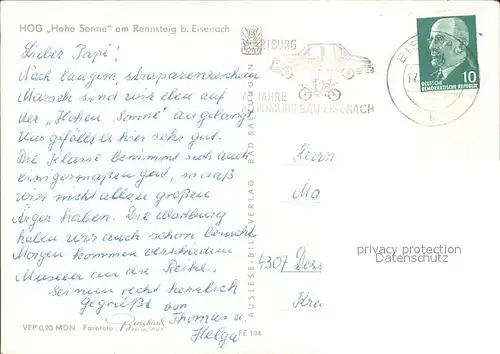 HOG „Hohe Sonne" am Rennsteig b. Eisenach
Lieber Papi!
Nach langem, strapazenreichem
Marsch sind wir eben auf
der „Hohen Sonne" angelangt.
Uns gefällt es hier sehr gut.
Die Klasse benimmt sich auch
einigermaßen gut, so daß
wir nicht allzu großen
Ärger haben. Die Wartburg
haben wir auch schon besucht.
Morgen kommen verschiedene
Museen an die Reihe.
Sei nun recht herzlich
gegrüßt von
Thomas u.
Helga
VEP 0,20 MDN Farbfoto
FE 104
AUSLESE-BILD-VERLAG BAD SALZUNGEN
WARTBURG
JAHRE
AUTOMOBILBAU EISENACH
EIS
b
DEUTSCHE
DEMOKRATISCHE REPUBLIK
10
Herrn
Ma
4307 Dess
Kra
privacy protection
Datenschutz